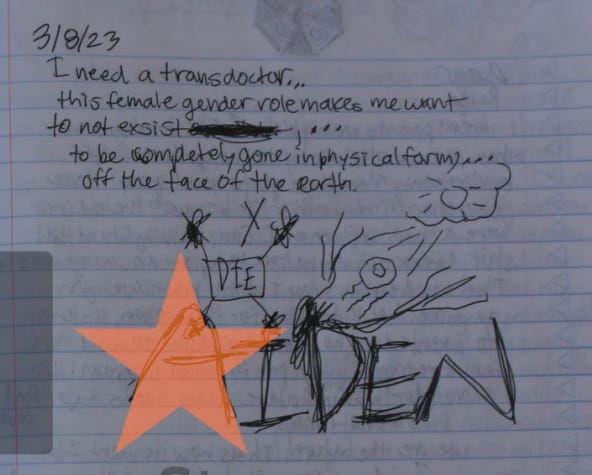 3/8/23
I need a transdoctor...
this female gender role makes me want
to not exsist , ...
to be completely gone in physical form, ...
off the face of the earth.
X
DIE
AIDEN